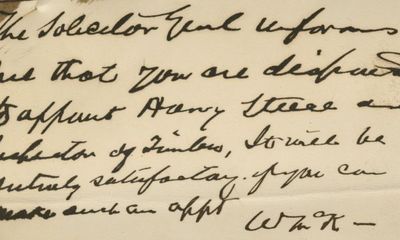 The Solicitor Genl informs
me that you are disposed
to appoint Harry Steele an
Inspector of Timber, It will be
entirely satisfactory if you can
make such an appt
W McK —